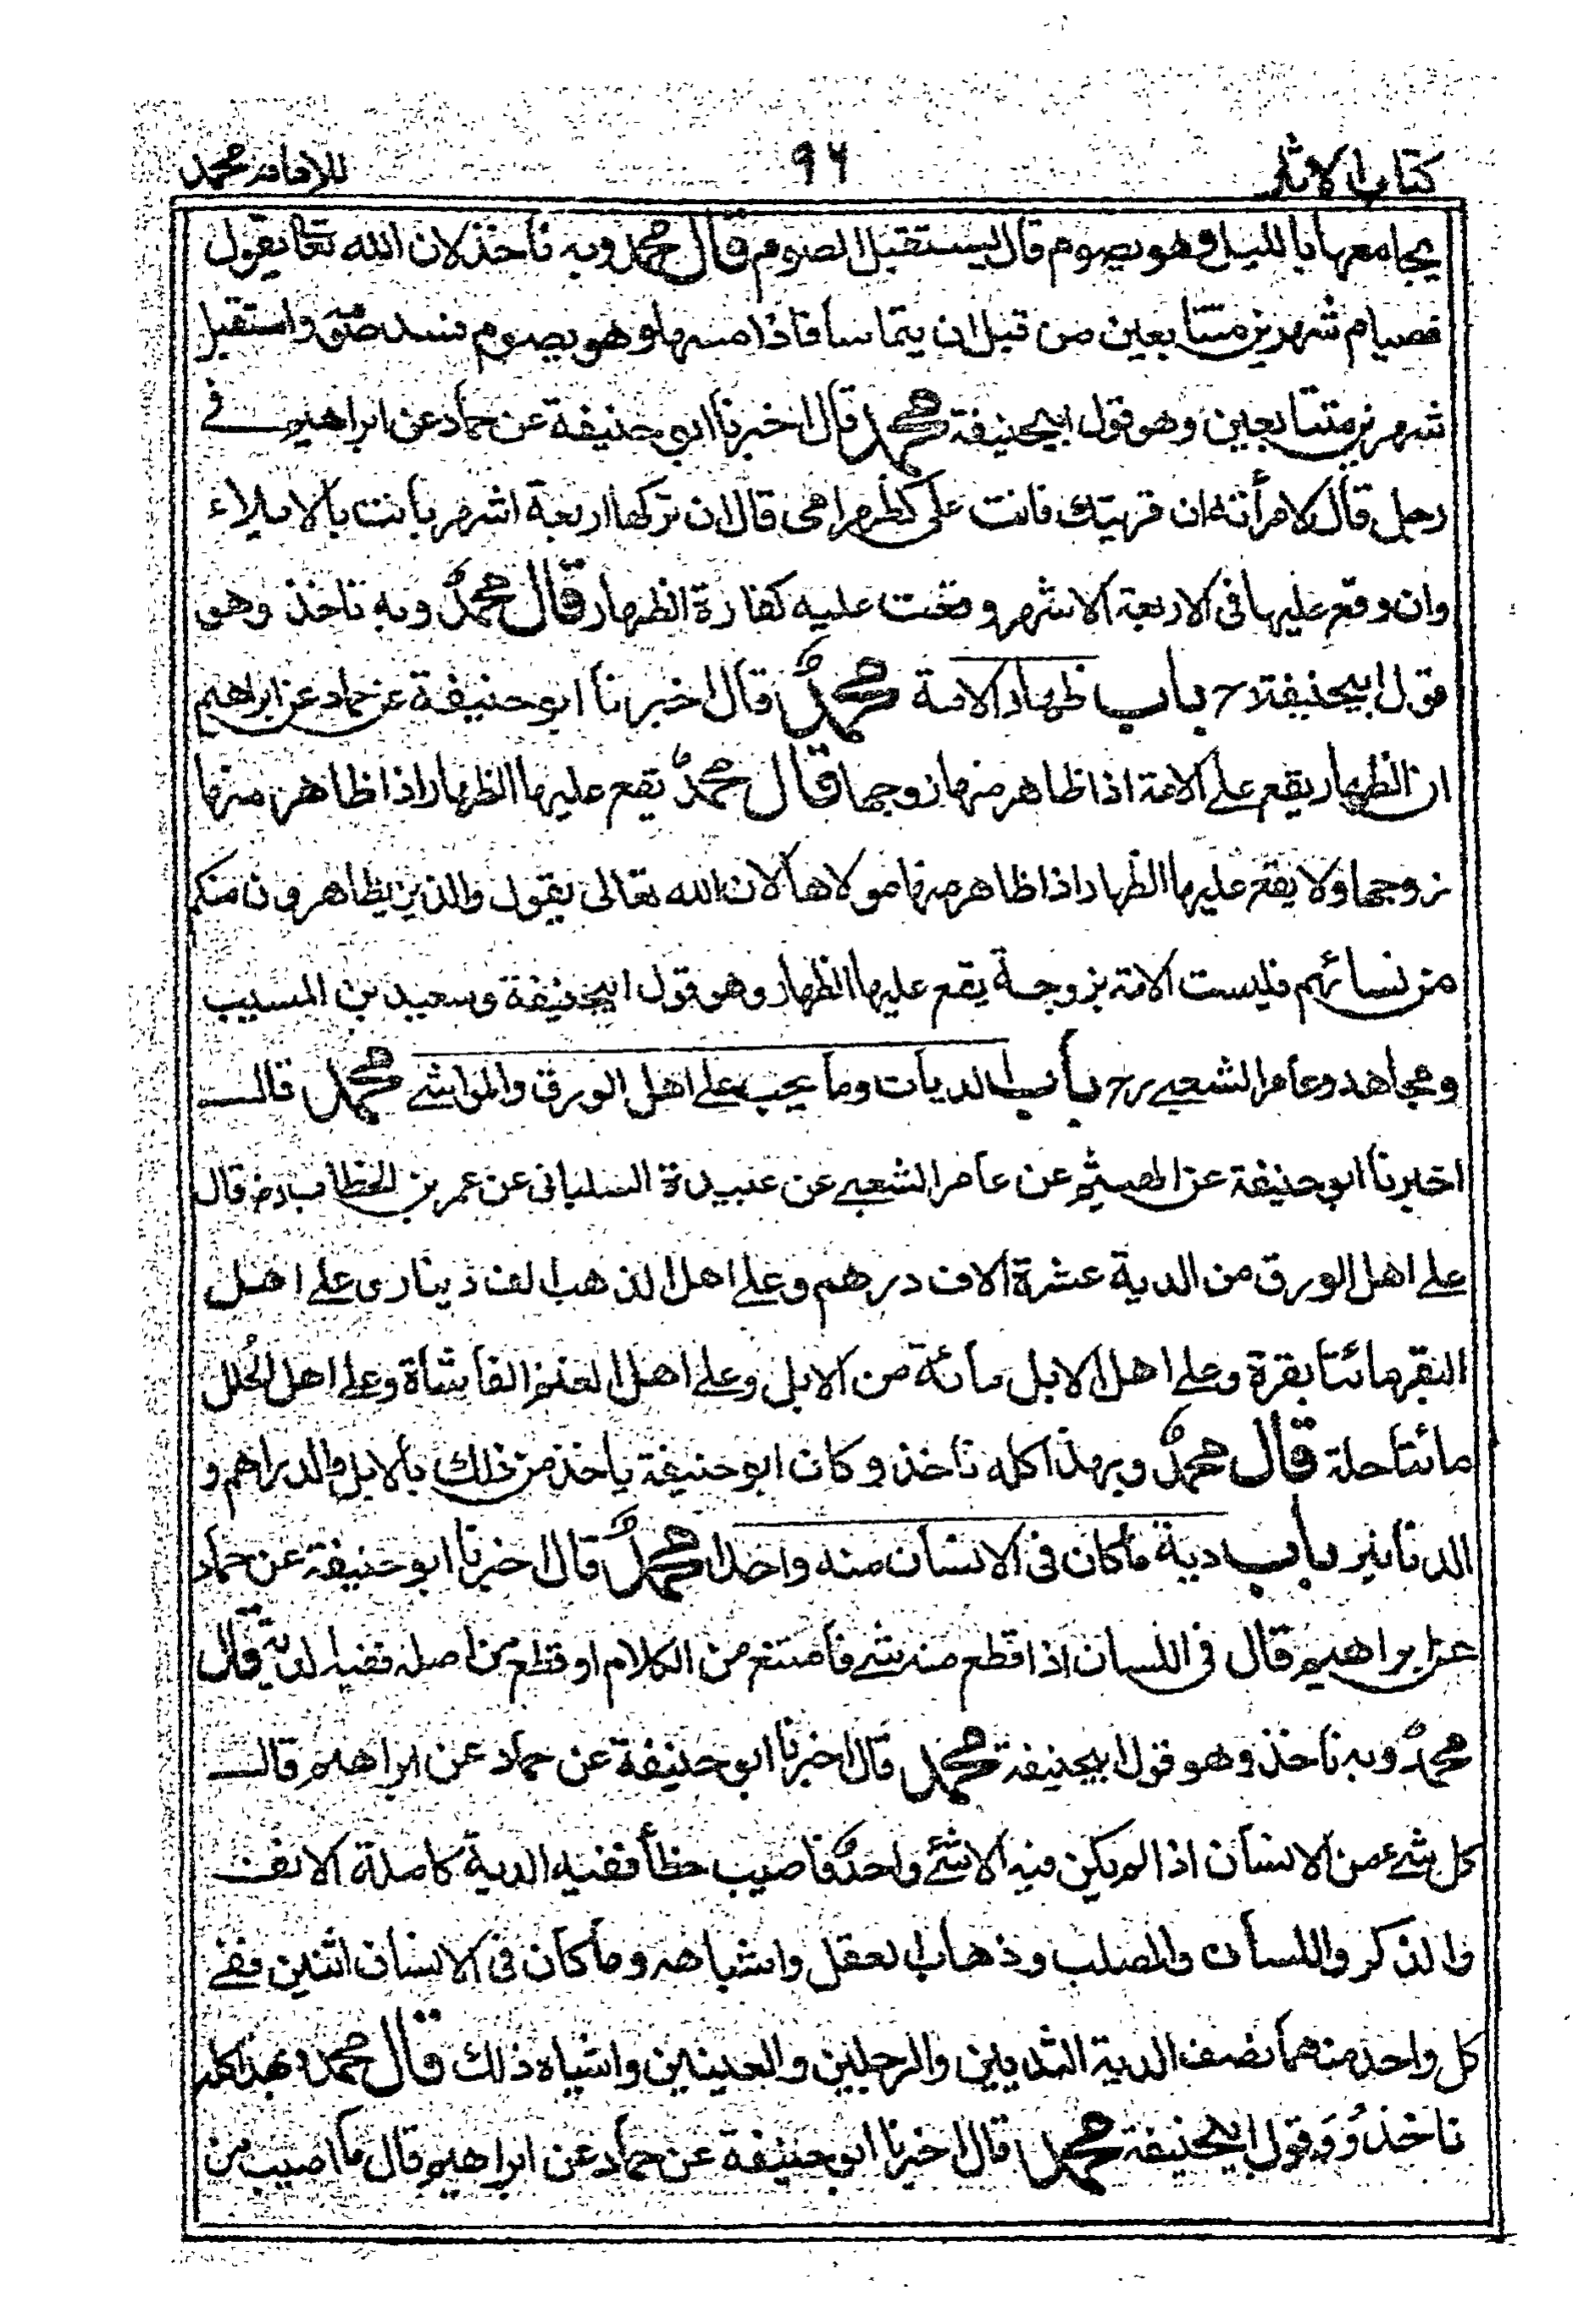 كتاب الاثار ٩٦ للامام محمد
يجامعها بالليل وهو يصوم قال يستقبل الصوم قال محمد وبه نأخذ لان الله تعا يقول
فصيام شهرين متتابعين من قبل ان يتماسا فاذا مسها وهو يصوم فسد صومه واستقبل
شهرين متتابعين وهو قول ابيحنيفة محمد قال اخبرنا ابو حنيفة عن حماد عن ابراهيم في
رجل قال لامرأته ان قربتك فانت على كظهر امى قال ان تركها اربعة اشهر بانت بالايلاء
وان وقع عليها فى الاربعة الاشهر وقعت عليه كفارة الظهار قال محمد وبه ناخذ وهو
قول ابيحنيفة رح باب ظهار الامة محمد قال اخبرنا ابو حنيفة عن حماد عن ابراهيم
ان الظهار يقع على الامة اذا ظاهر منها زوجها قال محمد يقع عليها الظهار اذا ظاهر منها
زوجها ولا يقع عليها الظهار اذا ظاهر منها مولاها لان الله تعالى يقول والذين يظاهرون منكم
من نسائهم فليست الامة بزوجة يقع عليها الظهار وهو قول ابيحنيفة وسعيد بن المسيب
ومجاهد وعامر الشعبي رح باب الديات وما يجب على اهل الورق والمواشي محمد قال
اخبرنا ابو حنيفة عن الهيثم عن عامر الشعبي عن عبيدة السلمانى عن عمر بن الخطاب رض قال
على اهل الورق من الدية عشرة الاف درهم وعلى اهل الذهب الف دينار وعلى اهل
البقر مائتا بقرة وعلى اهل الابل مائة من الابل وعلى اهل الغنم الفا شاة وعلى اهل الحُلل
مائتا حلة قال محمد وبهذا كله ناخذ وكان ابو حنيفة ياخذ من ذلك بالابل والدراهم و
الدنانير باب دية ما كان فى الانسان منه واحدا محمد قال اخبرنا ابو حنيفة عن حماد
عن ابراهيم قال فى اللسان اذا قطع منه شي فامتنع من الكلام او قطع من اصله ففيه الدية قال
محمد وبه ناخذ وهو قول ابيحنيفة محمد قال اخبرنا ابو حنيفة عن حماد عن ابراهيم قال
كل شيء من الانسان اذا لم يكن فيه الا شئ واحد فاصيب خطأ ففيه الدية كاملة الانف
والذكر واللسان والصلب وذهاب العقل واشباهه وما كان فى الانسان اثنين ففى
كل واحد منهما نصف الدية الثديين والرجلين والعينين واشباه ذلك قال محمد وبهذا كله
ناخذ وهو قول ابيحنيفة محمد قال اخبرنا ابو حنيفة عن حماد عن ابراهيم قال ما اصيب من